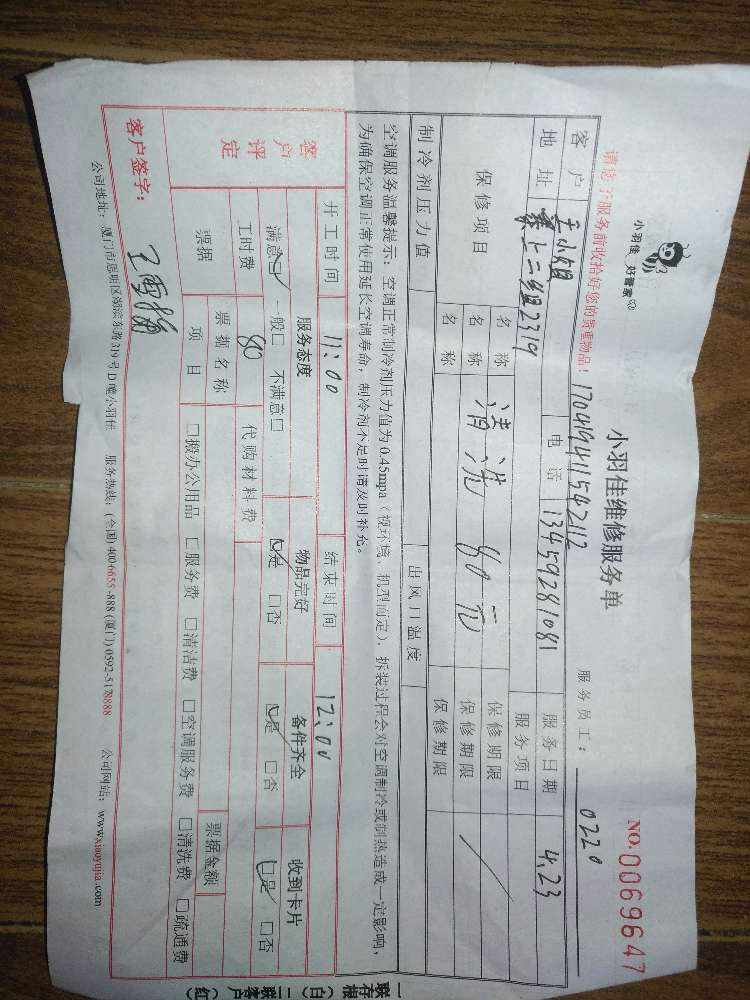 小羽佳 好管家
小羽佳维修服务单
NO.0069647
请您于服务前收拾好您的贵重物品!
服务员工: 0220
客户 王小姐 电话 13459281081 服务日期 4.23
地址 二组2319 服务项目
保修项目 名称 清洗 80元 保修期限
名称 保修期限
名称 保修期限
制冷剂压力值 出风口温度
空调服务温馨提示:空调正常制冷剂压力值为0.45mpa(视环境、机型而定),拆装过程会对空调制冷或制热造成一定影响,
为确保空调正常使用延长空调寿命,制冷剂不足时请及时补充。
开工时间 11:00 结束时间 12:00
客户评定 服务态度 物品完好 备件齐全 收到卡片
满意☑ 一般□ 不满意□ ☑是 □否 ☑是 □否 ☑是 □否
工时费 80 代购材料费
票据 票据名称 票据金额
项目 □搬办公用品 □服务费 □清洁费 □空调服务费 □清洗费 □疏通费
客户签字:
公司地址:厦门市思明区湖滨东路319号D幢小羽佳 服务热线:(全国)400-6655-888 (厦门)0592-5178888 公司网站:www.xiaoyujia.com
一联存根(白) 二联客户(红)